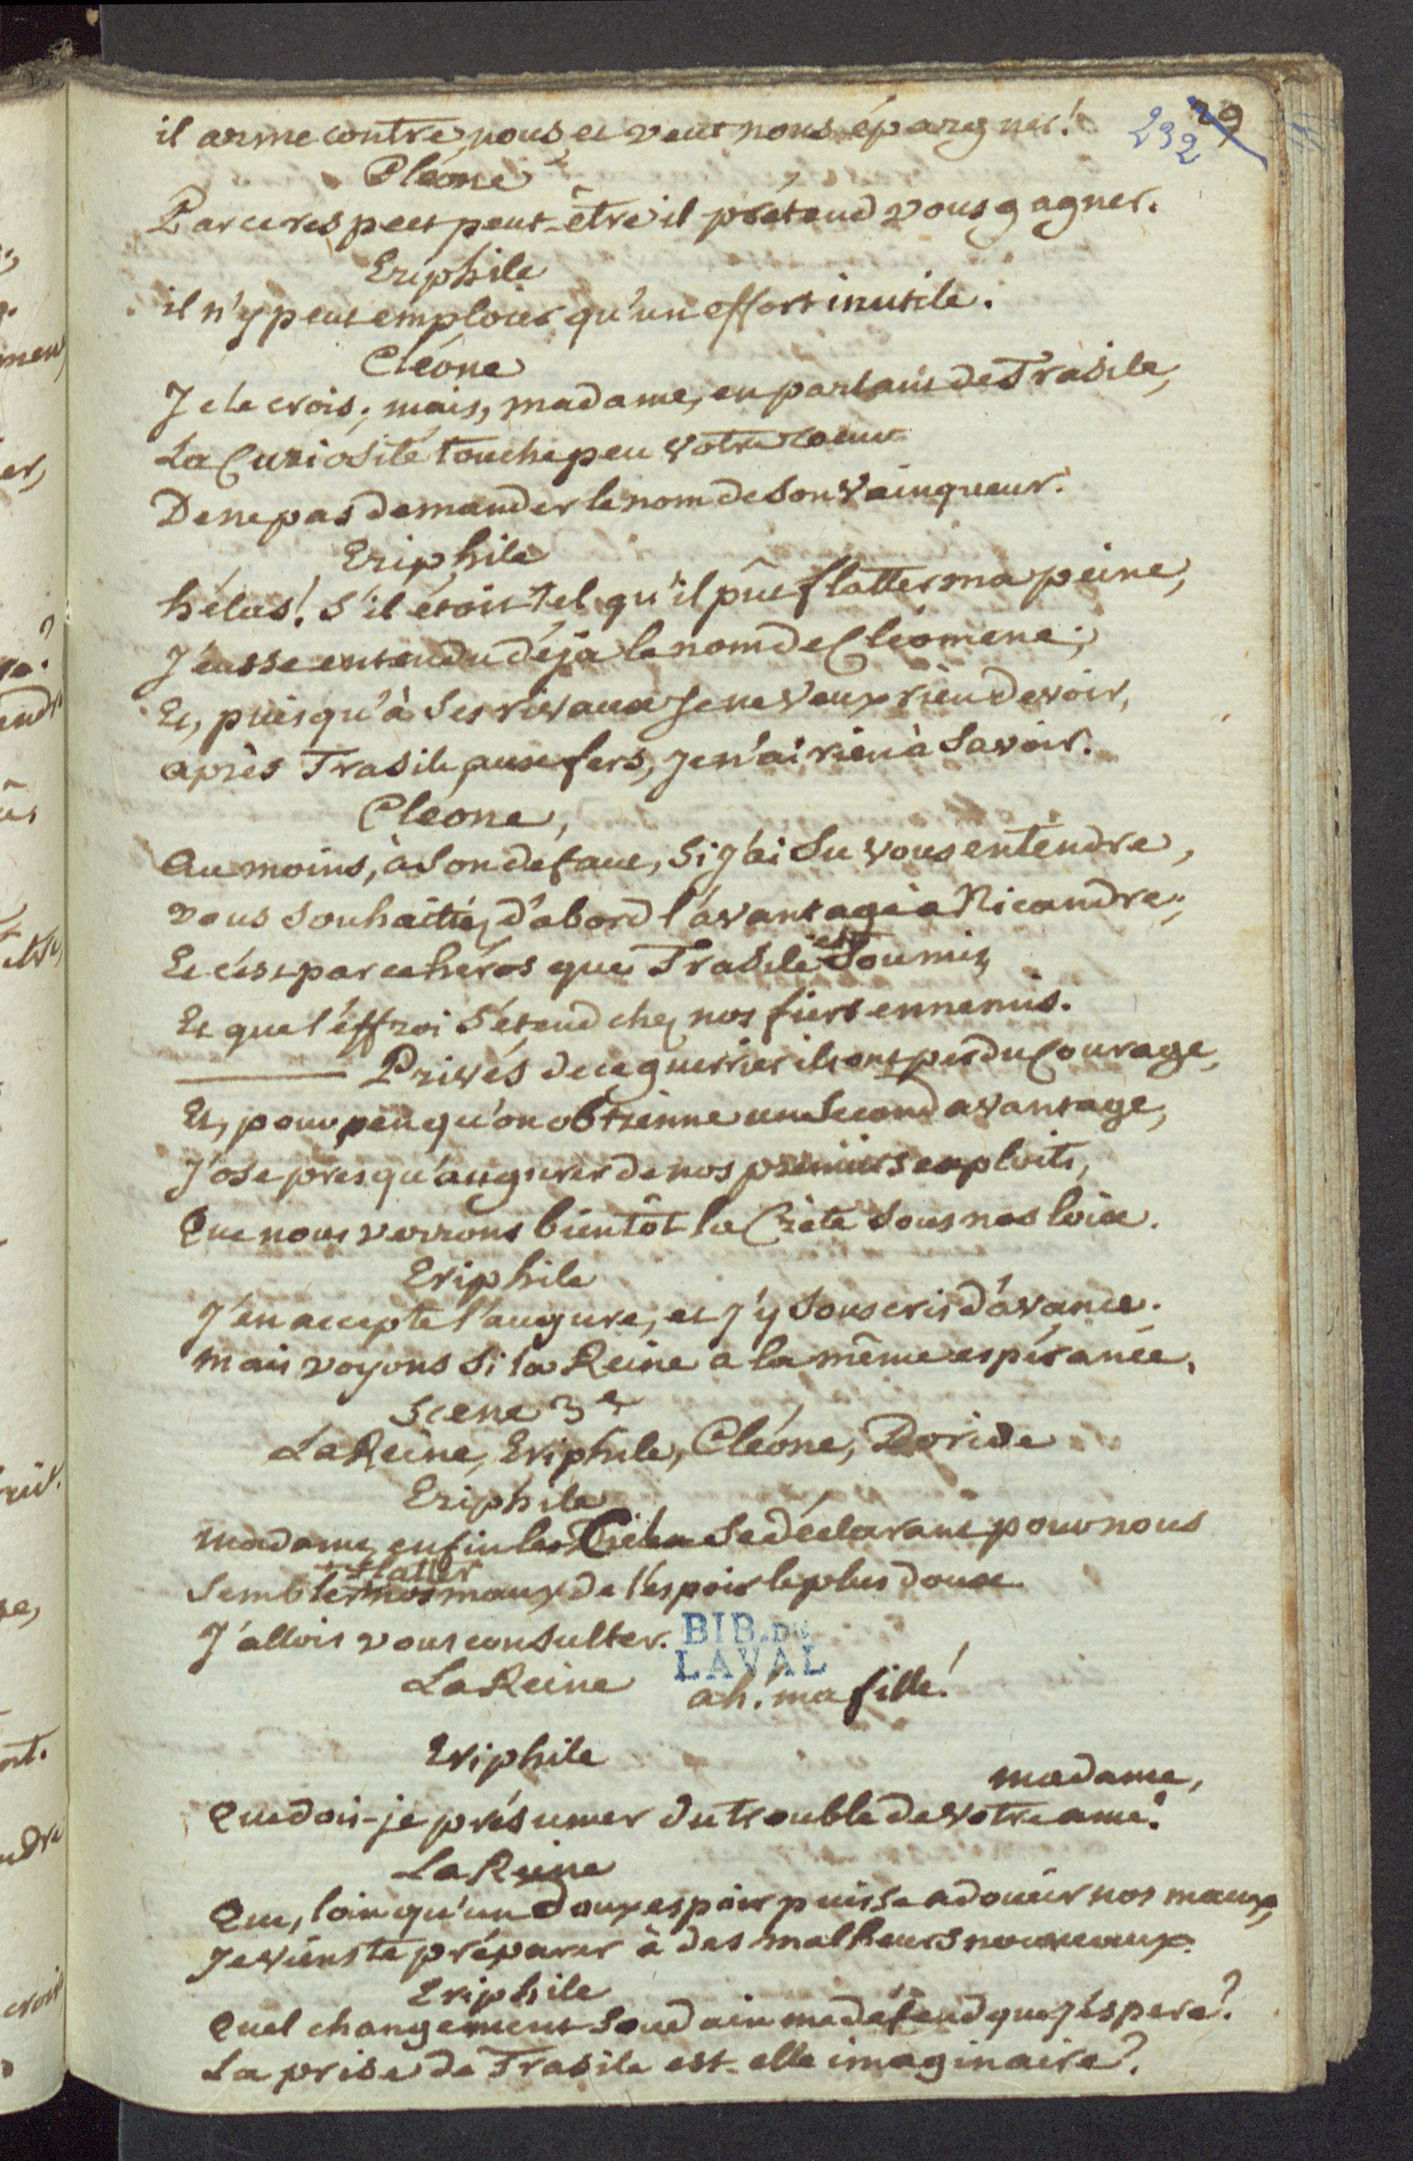 29
232
il arme contre nous, et veut nous épargner!
Cléone
Par ce respect peut-être il prétend vous gagner.
Eriphile
il n'y peut emploier qu'un effort inutile.
Cléone
Je le crois; mais, madame, en parlant de Trasile,
La Curiosité touche peu votre coeur
De ne pas demander le nom de son Vainqueur.
Eriphile
hélas! S'il étoit tel qu'il pût flatter ma peine,
J'eusse entendu déja le nom de Cléomene;
Et, puisqu'à ses rivaux je ne veux rien devoir,
après Trasile aux fers, je n'ai rien à Savoir.
Cléone,
Au moins, à son défaut, Si j'ai Su vous entendre,
vous Souhaitiez d'abord l'avantage à Nicandre;
Et c'est par ce héros que Trasile est Soumis,
Et que l'éffroi S'étend chez nos fiers ennemis.
Privés de ce guerrier ils ont perdu Courage,
Et, pour peu qu'on obtienne un Second avantage,
J'ose presqu'augurer de nos premiers exploits,
Que nous verrons bientôt la Crète Sous nos loix.
Eriphile
J'en accepte l'augure, et j'y Souscris d'avance.
Mais voyons Si la Reine a la même espérance.
Scene 3e
La Reine, Eriphile, Cléone, Doride
Eriphile
madame, enfin le Ciel Se déclarant pour nous
Semble flatter nos maux de l'espoir le plus doux
J'allois vous consulter.
BIB. DE
LAVAL
La Reine
ah! ma fille!
Eriphile
madame,
Que dois-je présumer du trouble de votre ame?
La Reine
Que, loin qu'un doux espoir puisse adoucir nos maux,
Je viens te préparer à des malheurs nouveaux.
Eriphile
Quel changement Soudain me défend que j'éspere?
La prise de Trasile est-elle imaginaire?